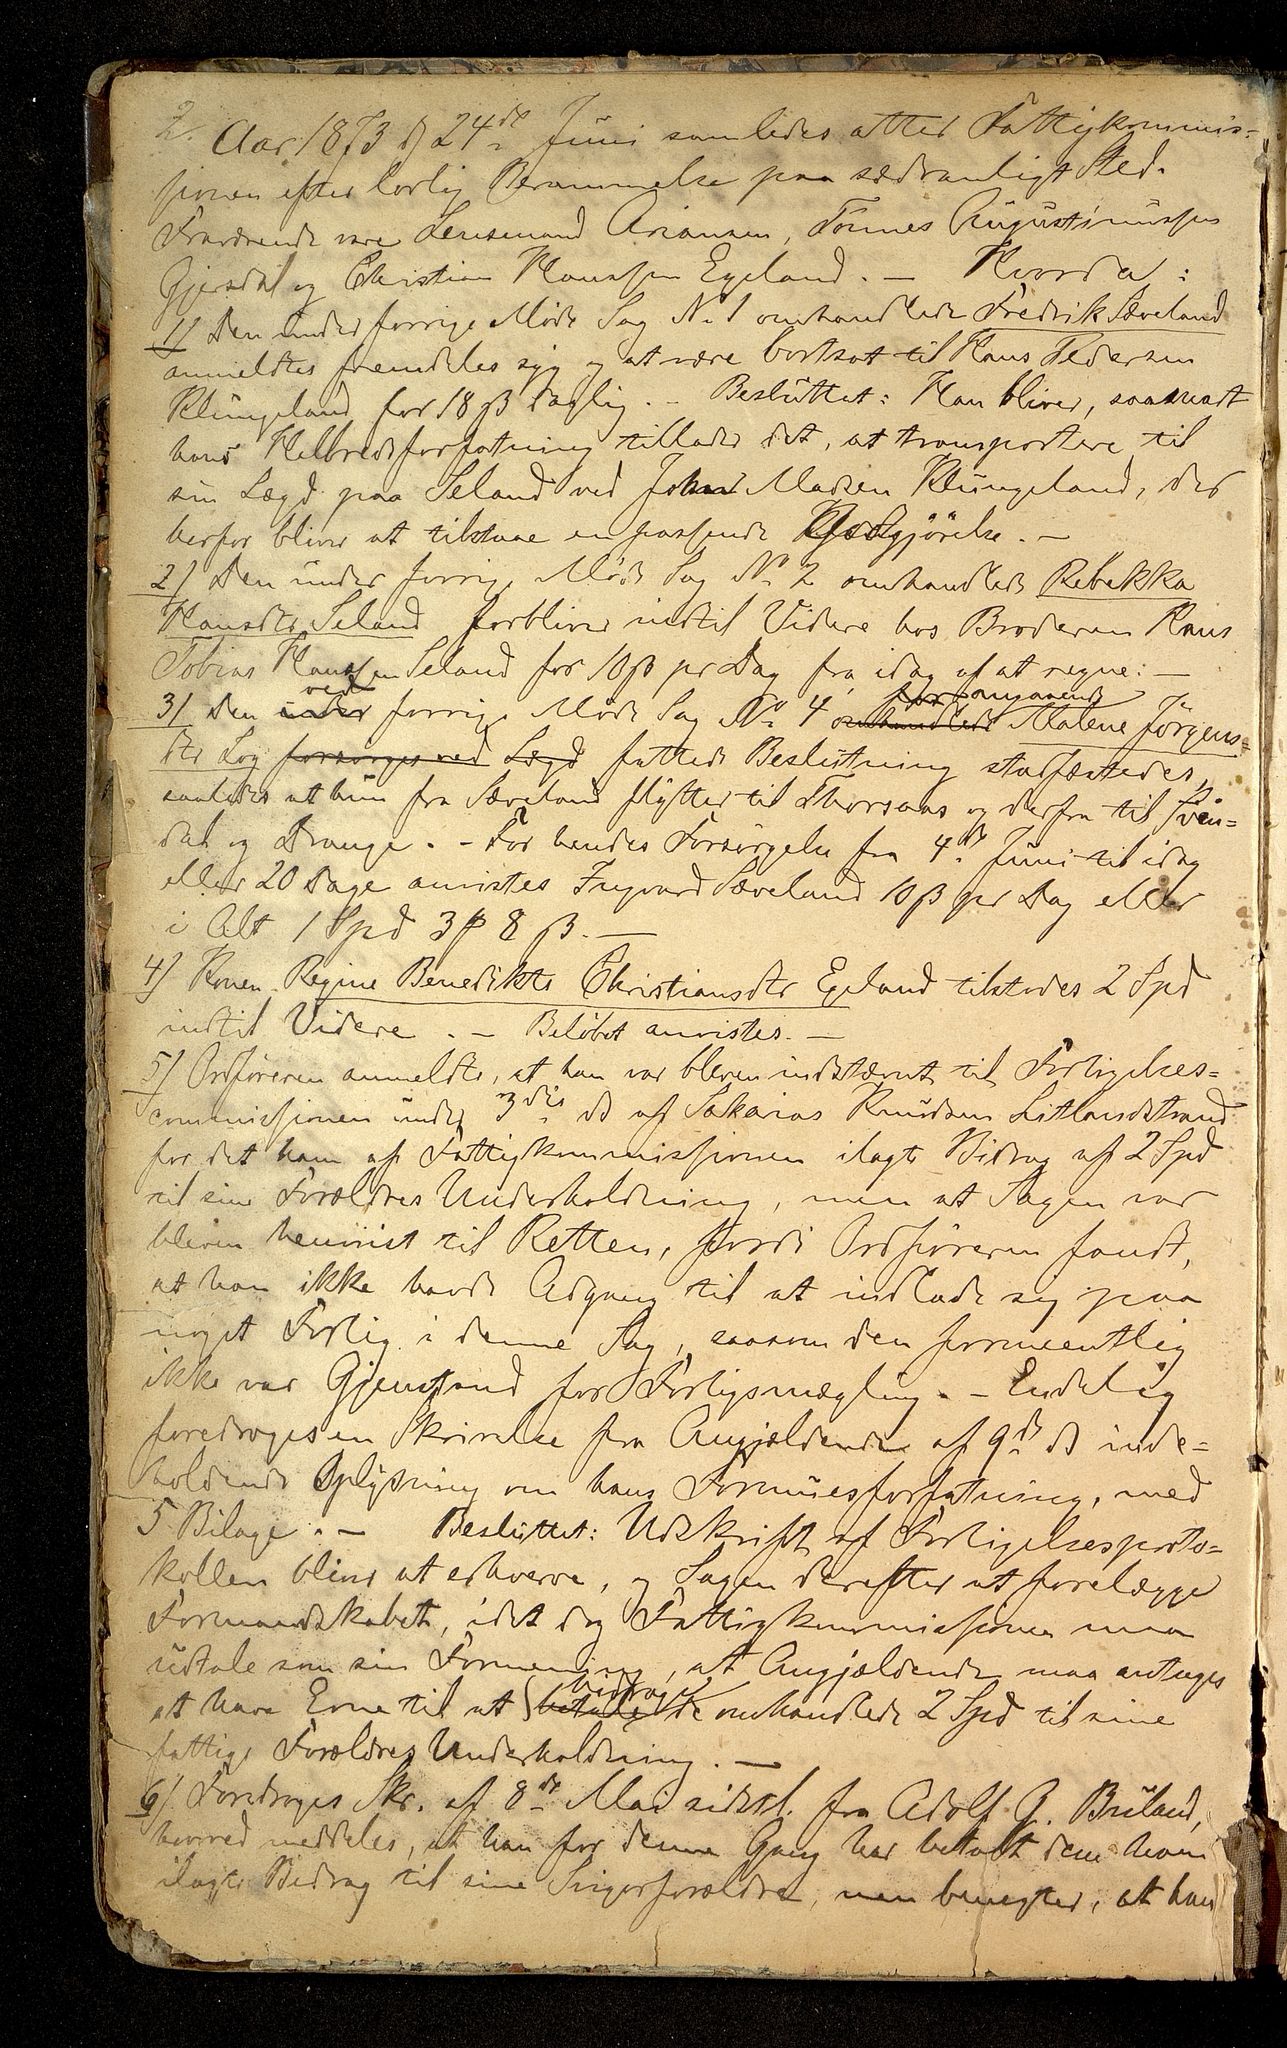 2.
Aar 1873 d 24de Juni samledes atter Fattigkommis-
sjonen efter lovlig Berammelse paa sædvanligt Sted.
Fraværende vare Lensmand Ariansen, Tönnes Augustinussen
Gjersdal og Christian Hanssen Egeland. — Hvorda:
1) Den under forrige Møde Sag No 1 omhandlede Fredrik Sæveland
anmeldtes fremdeles syg og at være bortsat til Hans Pedersen
Klungeland for 18 ß daglig. - Besluttet: Han bliver, saasnart
hans Helbredsforfatning tillader det, at transportere til
sin Lægd paa Seland ved John Madsen Klungeland, der
herfor bliver at tilstaae en passende Godtgjörelse. —
2) Den under forrige Møde Sag No 2 omhandlede Rebekka
Hansdtr Seland forbliver indtil Videre hos Broderen Hans
Tobias Hanssen Seland for 10 ß pr Dag fra idag af at regne: —
3) Den under ved forrige Møde Sag No 4 omhandlede angaaende Malene Jörgens-
dtr Log forsørges ved Lægd fattede Beslutning stadfæstedes,
saaledes at hun fra Sæveland flytter til Thorsaas og derfra til Svin-
dal og Drange. - For hendes Forsörgelse fra 4de Juni til idag
eller 20 Dage anvistes Ingvard Sæveland 10 ß pr Dag eller
i Alt 1 Spd 3 # 8 ß. —
4) Konen Regine Benedikte Christiansdtr Egeland tilstodes 2 Spd
indtil Videre. — Beløbet anvistes. —
5) Ordføreren anmeldte, at han var bleven indstævnt til Forligelses-
commissjonen under 3die ds af Sakarias Knudsen Listlandstrand
for det ham af Fattigkommissjonen ilagte Bidrag af 2 Spd
til sine Forældres Underholdning, men at Sagen var
bleven henvist til Retten, fordi Ordføreren fandt,
at han ikke havde Adgang til at indlade sig paa
noget Forlig i denne Sag, saasom den formeentlig
ikke var Gjenstand for Forligsmægling. — Endelig
foredroges en Skrivelse fra Angjældende af 9de ds inde-
holdende Oplysning om hans Formuesforfatning, med
5 Bilage. — Besluttet: Udskrift af Forligelsesproto-
kollen bliver at erhverve, og Sagen derefter at forelægge
Formandskabet, idet dog Fattigkommissjonen maa
udtale som sin Formening, at Angjældende maa antages
at have Evne til at betale bidrage de omhandlede 2 Spd til sine
fattige Forældres Underholdning. —
6) Foredroges Skr. af 8de Mai sidstl. fra Adolf G. Briland,
hvorved meddeles, at han for denne Gang har betalt dem ham
ilagte Bidrag til sine Svigerforældre, men benegter, at han